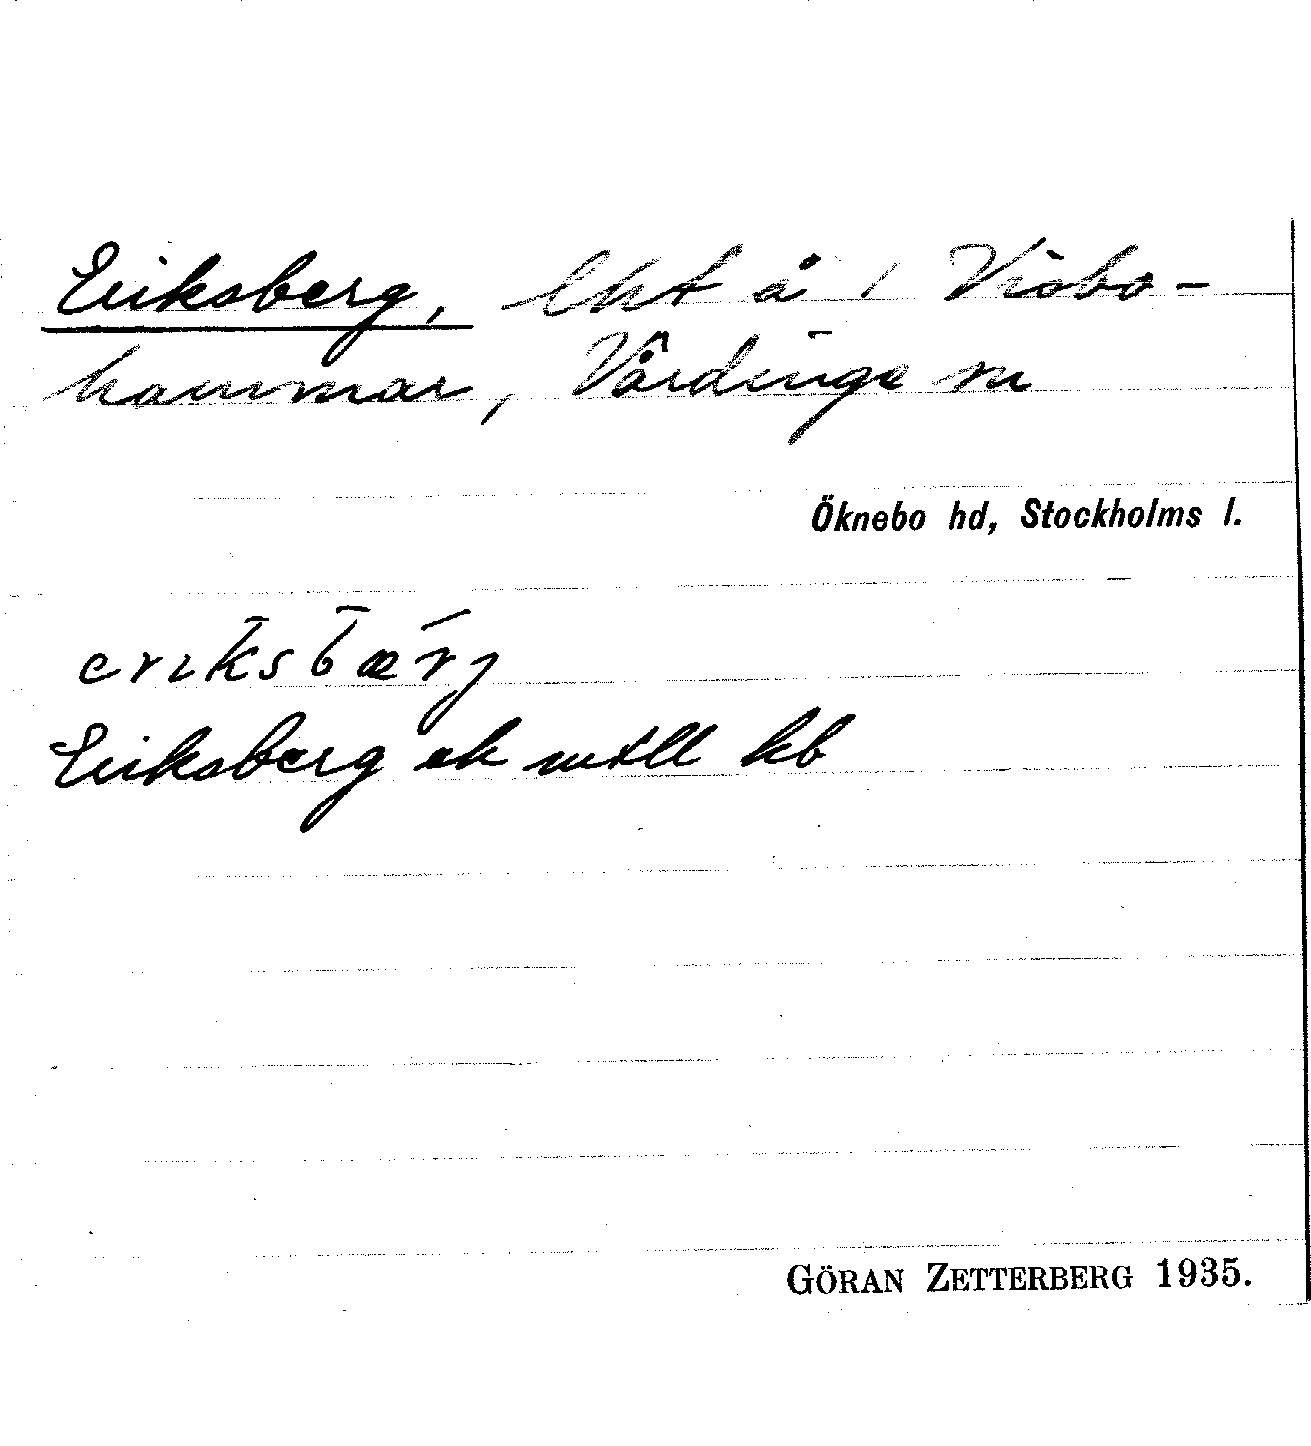 Eriksberg, lht å 1 Visbo-
hammar, Vårdinge sn
Öknebo hd, Stockholms l.
erıksbærj
Eriksberg ek mtll kb
GÖRAN ZETTERBERG 1935.